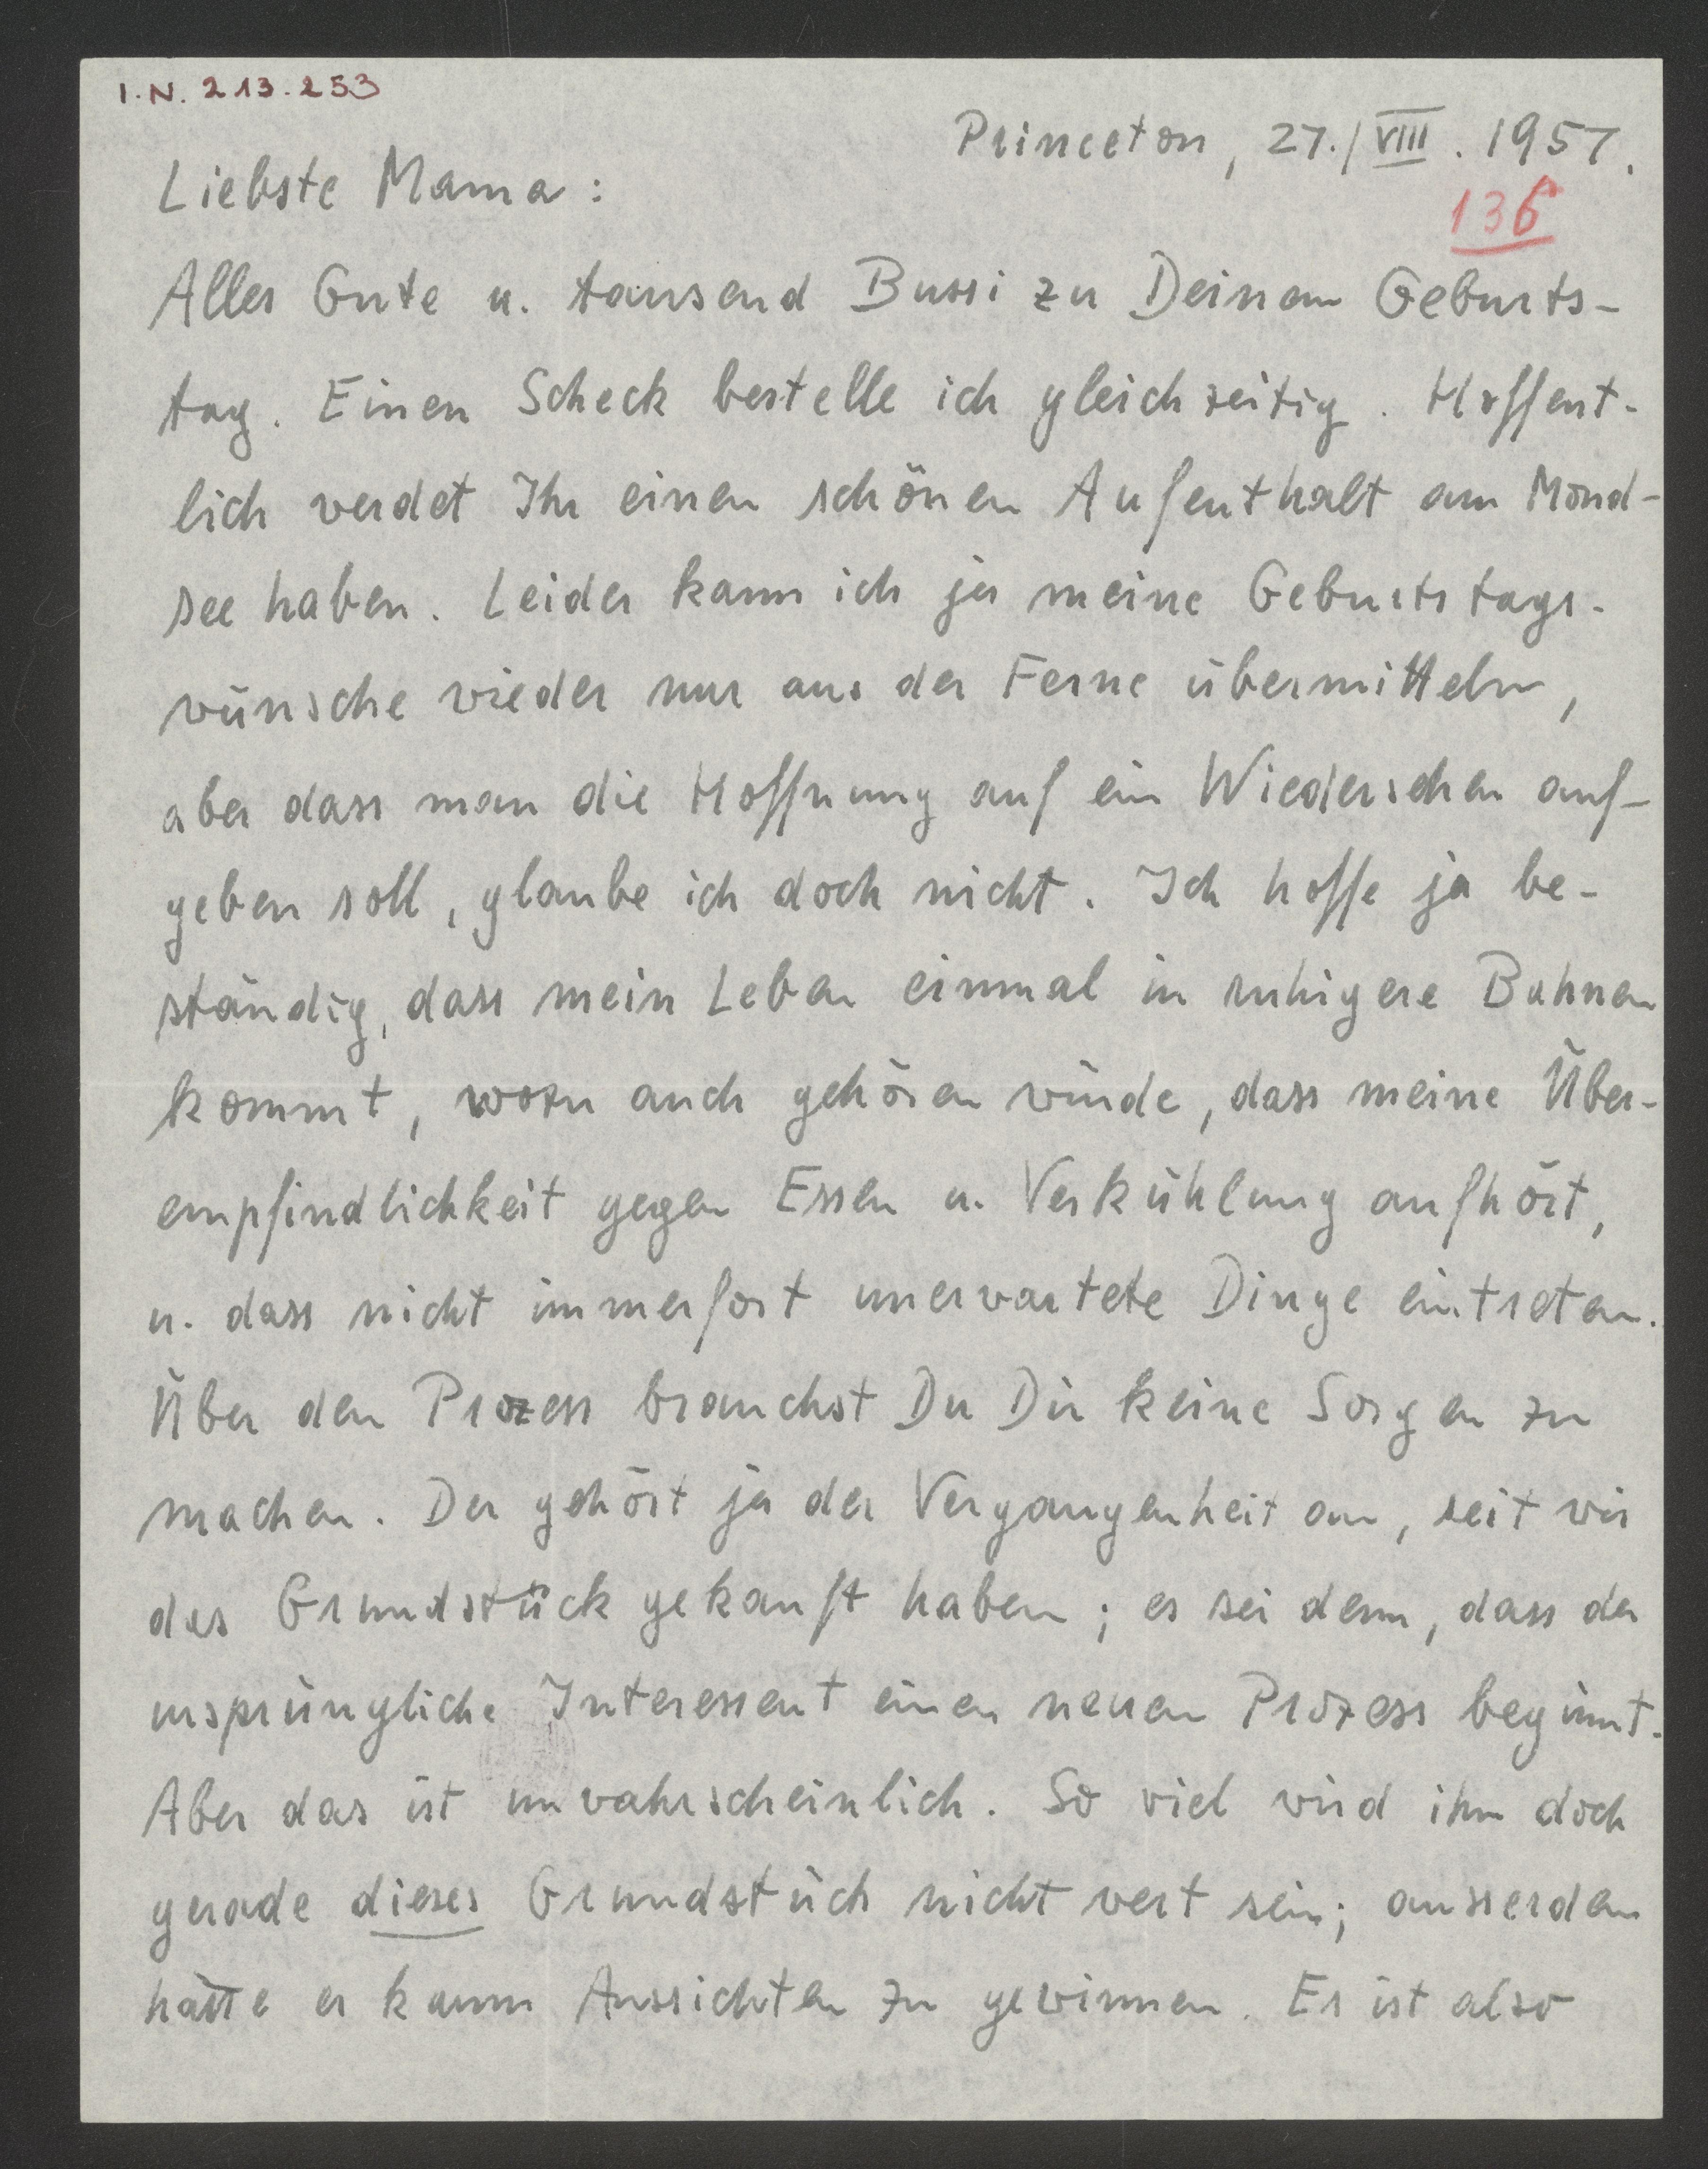 I.N. 213.253
Princeton, 27./VIII. 1957.
136
Liebste Mama:
Alles Gute u. tausend Bussi zu Deinem Geburts-
tag. Einen Scheck bestelle ich gleichzeitig. Hoffent-
lich werdet Ihr einen schönen Aufenthalt am Mond-
see haben. Leider kann ich ja meine Geburtstags-
wünsche wieder nur aus der Ferne übermitteln,
aber dass man die Hoffnung auf ein Wiedersehen auf-
geben soll, glaube ich doch nicht. Ich hoffe ja be-
ständig, dass mein Leben einmal in ruhigere Bahnen
kommt, wozu auch gehören würde, dass meine Über-
empfindlichkeit gegen Essen u. Verkühlung aufhört,
u. dass nicht immerfort unerwartete Dinge eintreten.
Über den Prozess brauchst Du Dir keine Sorgen zu
machen. Der gehört ja der Vergangenheit an, seit wir
das Grundstück gekauft haben; es sei denn, dass der
ursprüngliche Interessent einen neuen Prozess beginnt.
Aber das ist unwahrscheinlich. So viel wird ihm doch
gerade dieses Grundstück nicht wert sein; ausserdem
hätte er kaum Aussichten zu gewinnen. Es ist also